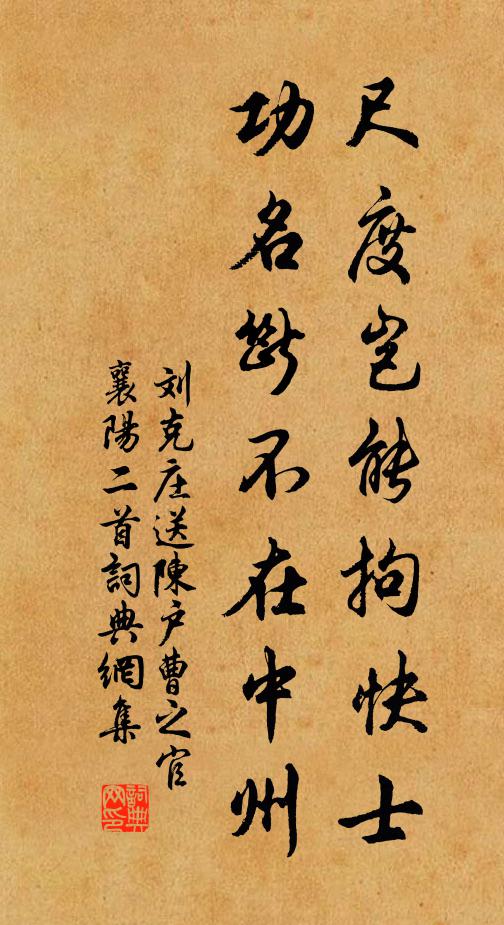 尺度岂能拘快士
功名断不在中州
刘克庄送陳户曹之官
襄陽二首詞典網集
詞典
网印